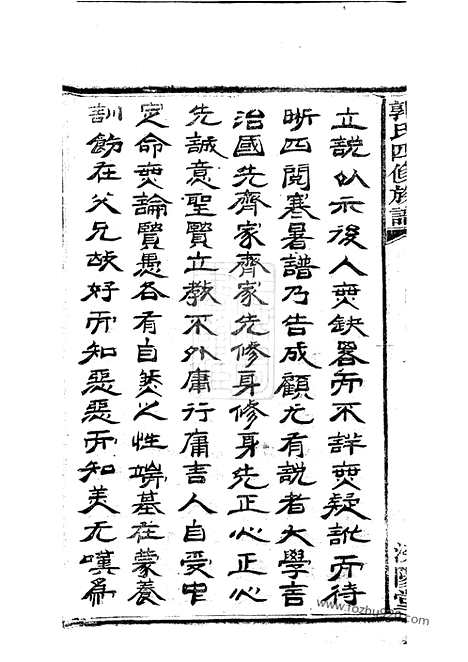 郭氏四修族譜
立說以示後人無缺畧而不詳無疑訛而待
晰四閱寒暑譜乃告成顧尤有說者大學言
治國先齊家齊家先修身修身先正心正心
先誠意聖賢立教不外庸行庸言人自受中
定命無論賢愚各有自然之性端基在蒙養
訓飭在父兄故好而知惡惡而知美尤嘆為
www.fozhu920.com